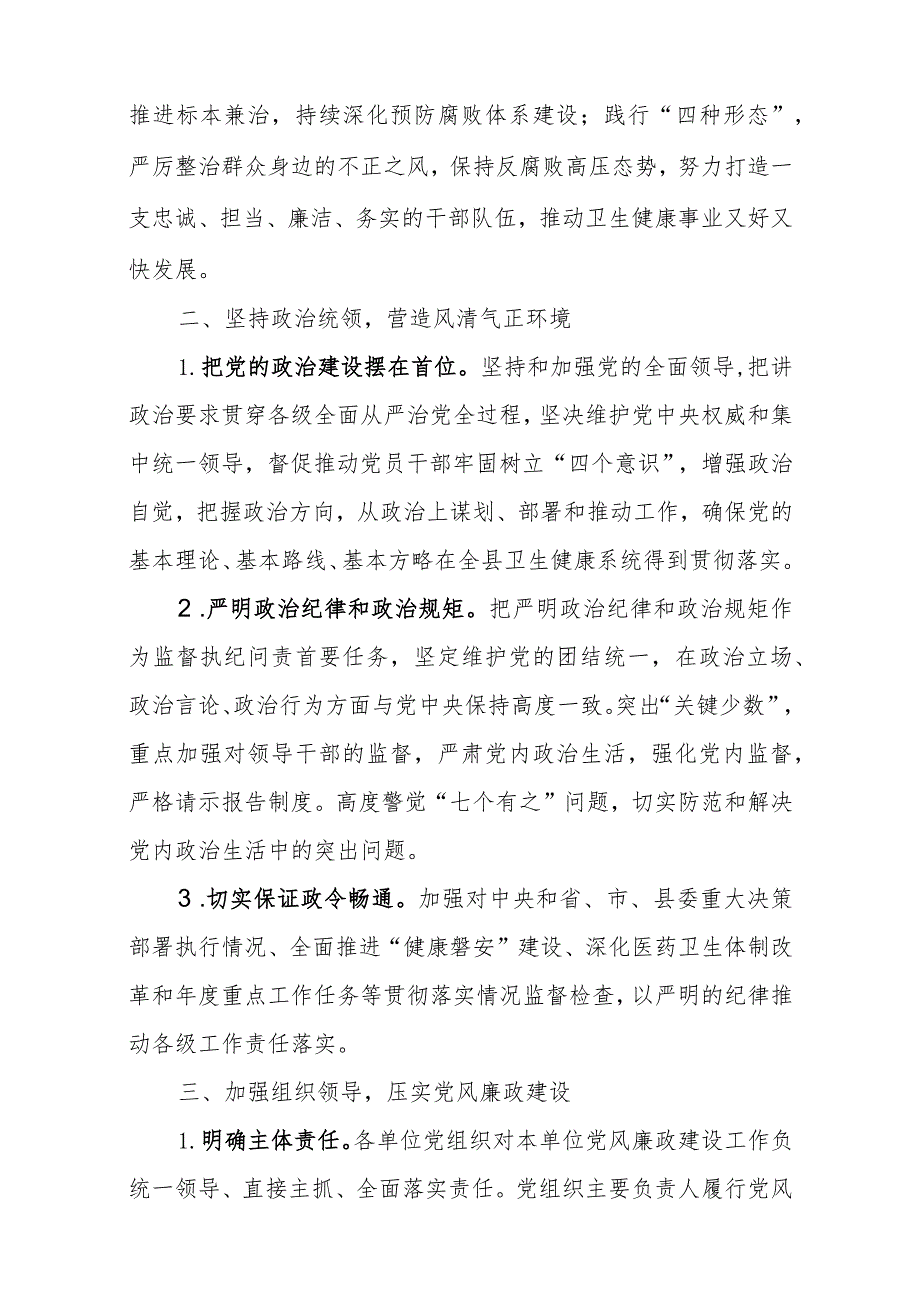 推进标本兼治，持续深化预防腐败体系建设；践行“四种形态”，
严厉整治群众身边的不正之风，保持反腐败高压态势，努力打造一
支忠诚、担当、廉洁、务实的干部队伍，推动卫生健康事业又好又
快发展。
二、坚持政治统领，营造风清气正环境
1.把党的政治建设摆在首位。坚持和加强党的全面领导,把讲
政治要求贯穿各级全面从严治党全过程，坚决维护党中央权威和集
中统一领导，督促推动党员干部牢固树立“四个意识”，增强政治
自觉，把握政治方向，从政治上谋划、部署和推动工作，确保党的
基本理论、基本路线、基本方略在全县卫生健康系统得到贯彻落实。
2.严明政治纪律和政治规矩。把严明政治纪律和政治规矩作
为监督执纪问责首要任务，坚定维护党的团结统一，在政治立场、
政治言论、政治行为方面与党中央保持高度一致。突出“关键少数”，
重点加强对领导干部的监督，严肃党内政治生活，强化党内监督，
严格请示报告制度。高度警觉“七个有之”问题，切实防范和解决
党内政治生活中的突出问题。
3.切实保证政令畅通。加强对中央和省、市、县委重大决策
部署执行情况、全面推进“健康磐安”建设、深化医药卫生体制改
革和年度重点工作任务等贯彻落实情况监督检查，以严明的纪律推
动各级工作责任落实。
三、加强组织领导，压实党风廉政建设
1.明确主体责任。各单位党组织对本单位党风廉政建设工作负
统一领导、直接主抓、全面落实责任。党组织主要负责人履行党风